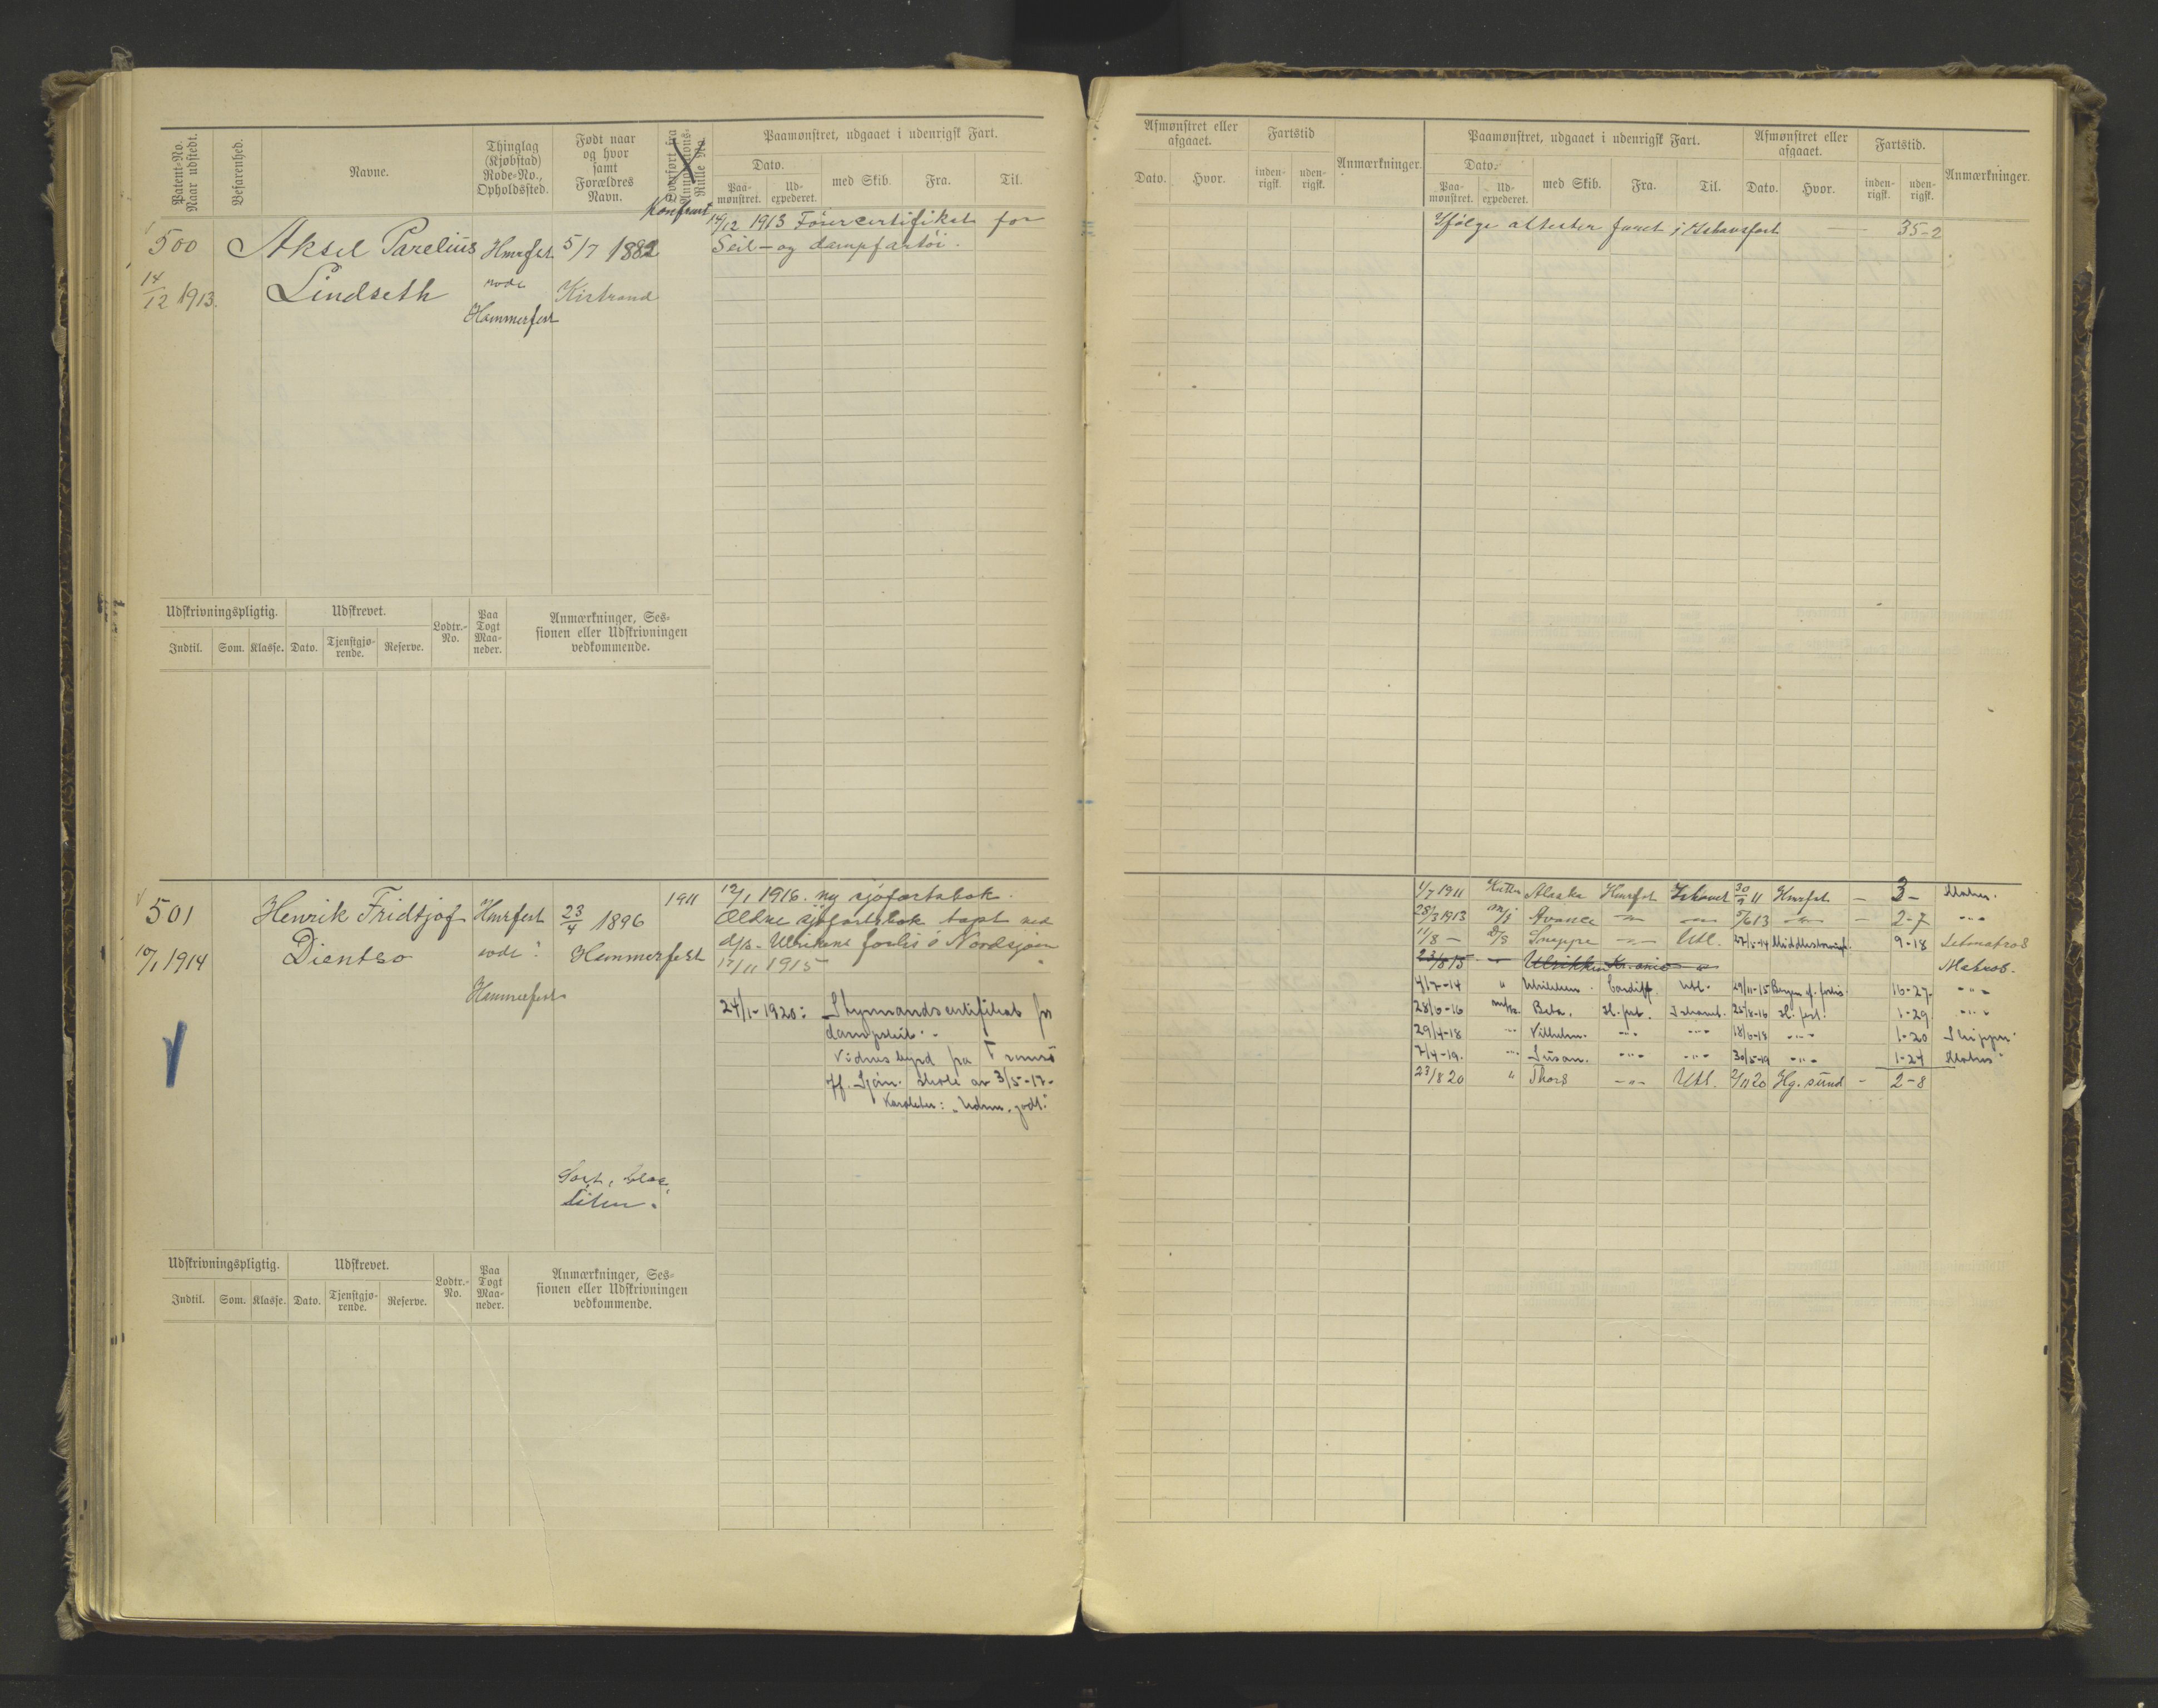 Patent-No. Naar udstedt.
Befarenhed.
Navne.
Thinglag (Kjøbstad) Rode-No., Opholdssted.
Født naar og hvor samt Forældres Navn.
Overført fra Annotations-Rulle No.
Konfirmt
Paamønstret, udgaaet i udenrigsk Fart.
Dato.
Paa-mønstret. Ud-expederet.
med Skib. Fra. Til.
500 Aksel Parelius Hmrfest 5/7 1882
14/12 1913. Lindseth rode Kistrand
Hammerfest
14/12 1913 Førercertifikat for
Seil- og dampfartøi.
Udskrivningspligtig. Udskrevet. Lodtr.-No. Paa Togt Maa-neder. Anmærkninger, Ses-sionen eller Udskrivningen vedkommende.
Indtil. Som. Klasse. Dato. Tjenstgjø-rende. Reserve.
501 Henrik Fridtjof Hmrfest 23/4 1896 1911
10/1 1914 Dientso rode Hammerfest
Hammerfest
12/1 1916. ny sjøfartsbok.
Ældre sjøfartsbok tapt ved
d/s. Ulrikens forlis i Nordsjøen
17/11 1915
24/1-1920: Styrmandscertifikat for
dampskib.
Vidnesbyrd fra Tromsø
off. Sjøm. skole av 3/5-17-
Karakter: "Udm. godt."
Sort, blaa,
liten.
Udskrivningspligtig. Udskrevet. Lodtr.-No. Paa Togt Maa-neder. Anmærkninger, Ses-sionen eller Udskrivningen vedkommende.
Indtil. Som. Klasse. Dato. Tjenstgjø-rende. Reserve.
Afmønstret eller afgaaet. Fartstid Anmærkninger. Paamønstret, udgaaet i udenrigsk Fart. Afmønstret eller afgaaet. Fartstid. Anmærkninger.
Dato. Hvor. inden-rigsk. uden-rigsk. Dato. Paa-mønstret. Ud-expederet. med Skib. Fra. Til. Dato. Hvor. inden-rigsk. uden-rigsk.
Ifølge attester faret i Ishavsfart — 35-2
1/7 1911 Kutter Alaska Hmrfest Ishavet 30/9 11 Hmrfest — 3- Matros.
28/3 1913 m/s Avance -"- -"- 5/6 13 -"- - 2-7 -"-
11/8 — d/s Sneppe -"- Utl. 27/5-14 9-18 Letmatros
23/8 15 - Ulrikken - " Matros.
4/7-14 " Ulrikken. Cardiff. Utl. 29/11-15 Bergen ef. forlis. 16-27. -"-
28/6-16 Beta. H.fest. Ishavet. 25/8-16 H.fest. 1-29 -"-
29/4-18 -"- Vilhelm. -"- -"- 18/6-18 -"- 1-20 Skipper
7/4-19. -"- Susan. -"- -"- 30/5-19 -"- 1-24 Matros
23/8 20 " Thors -"- Utl. 2/11 20 Hg.sund - 2-8